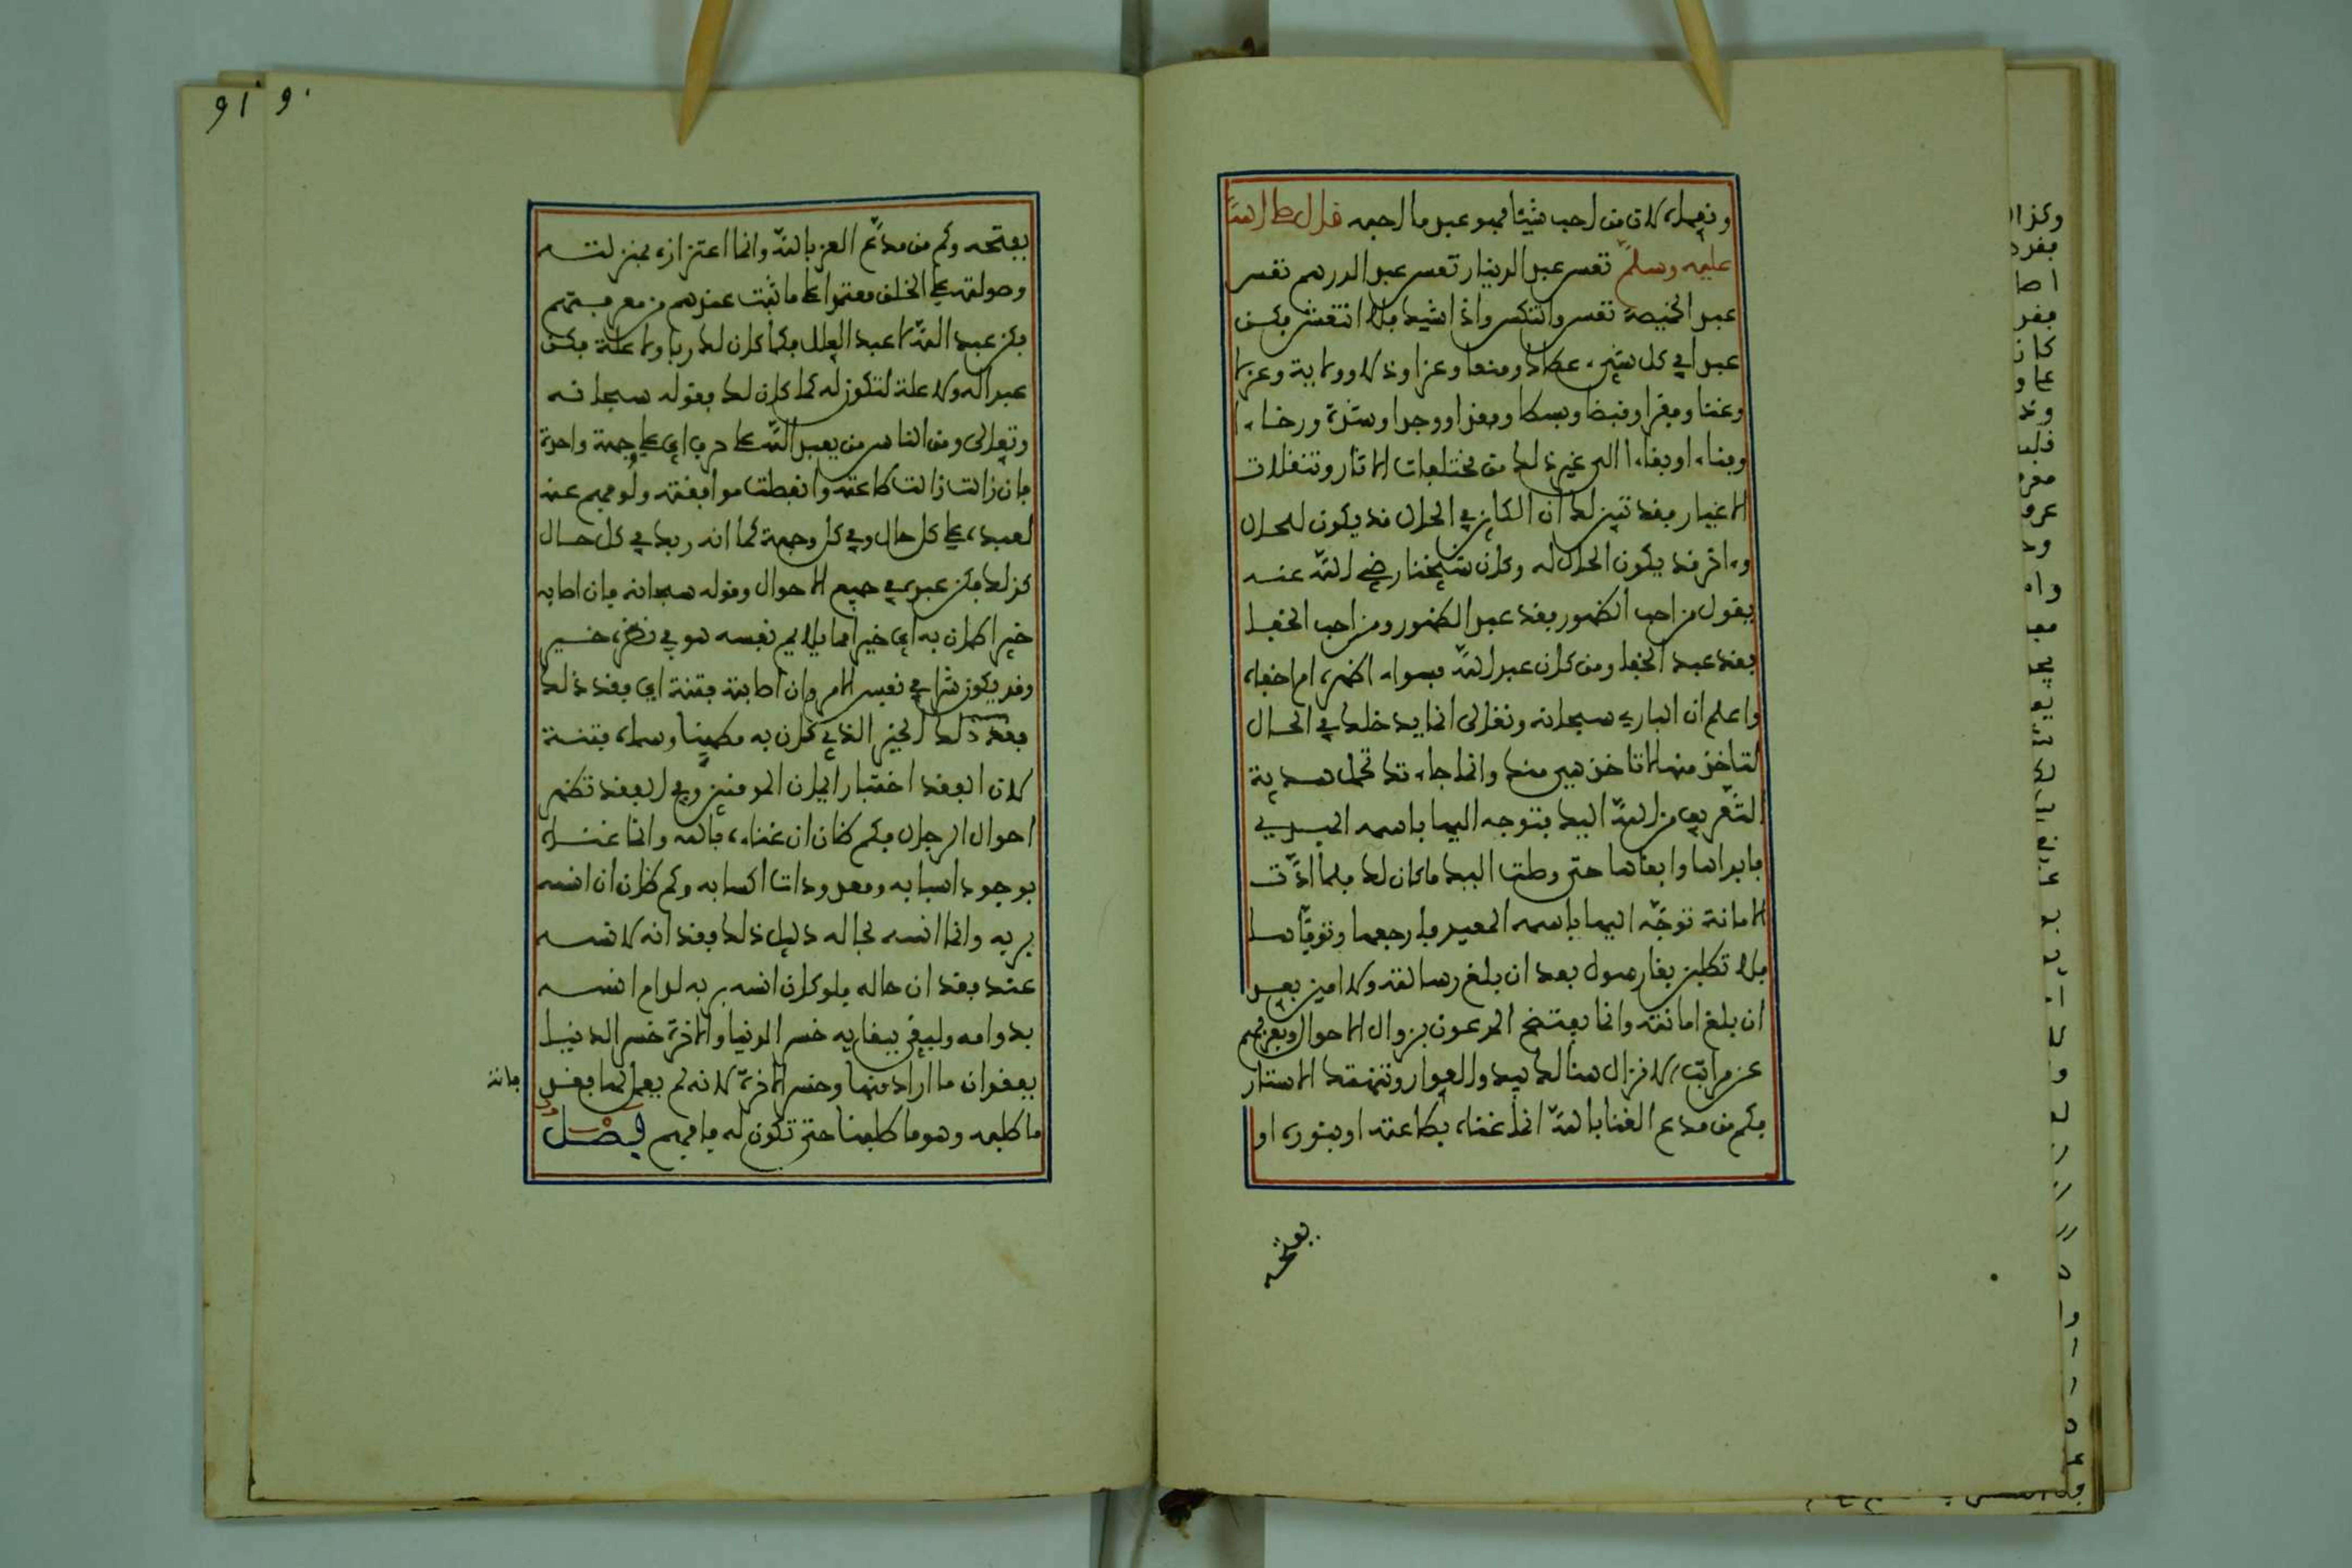 ونعيمك لان من احب شيئا فهو عبد ما احبه قال صلى الله
عليه وسلم تعس عبد الدينار تعس عبد الدرهم تعس
عبد الخميصة تعس وانتكس واذا شيك فلا انتقش فكن
عبدا في كل شيء عطاء ومنعا وعزا وذلا وولاية وعزلا
وغنا وفقرا وقبضا وبسطا وفقدا ووجدا وشدة ورخاء ا
وفناء او بقاء الى غير ذلك من مختلفات الاثار وتنقلات
الاغيار فقد تبين لك ان الكائن في الحال قد يكون للحال
وءاخر قد يكون الحال له وكان شيخنا رضي الله عنه
يقول من احب الظهور فقد عبد الظهور ومن احب الخفا
فقد عبد الخفا ومن كان عبد الله فسواء اظهره ام اخفاه
واعلم ان الباري سبحانه وتعالى انما يدخلك في الحال
لتاخذ منها لا تاخذ هي منك وانما جاءتك تحمل هدية
التعريف من الله اليك فتوجه اليها باسمه المبدي
فابداها وابقاها حتى وصلت اليك ما كان لك فلما ادت
الامانة توجه اليها باسمه المعيد فارجعها وتوفاها
فلا تطلبن بقا رسول بعد ان بلغ رسالته ولا امين بعد
ان بلغ امانته وانما يفتضح المدعون بزوال الاحوال وبعزلهم
عن مراتب الانزال هنالك يبدو العوار وتنهتك الاستار
فكم من مدع الغنا بالله انما غناه بطاعته او بنوره او
بفتحه
بفتحه وكم من مدع العز بالله وانما اعتزازه بمنزلته
وصولته على الخلق معتمدا على ما ثبت عندهم من معرفتهم
فكن عبد الله لا عبد العلل فكما كان لك ربا ولا علة فكن
عبدا له ولا علة لتكون له كما كان لك فقوله سبحانه
وتعالى ومن الناس من يعبد الله على حرف اي على وجهة واحدة
فان زالت زالت طاعته وانقطعت موافقته ولو فهم عنه
لعبده على كل حال وفي كل وجهة كما انه ربك في كل حال
كذلك فكن عبده في جميع الاحوال وقوله سبحانه فان اصابه
خير اطمان به اي خير مما يلايم نفسه هو في نظره خير
وقد يكون شرا في نفس الامر وان اصابته فتنة اي فقد ذلك
بعد ذلك الخير الذي كان به مطمينا وسماه فتنة
لان الفقد اختبار ايمان المومنين وفي الفقد تظهر
احوال الرجال فكم ظان ان غناه بالله وانما غناه
بوجود اسبابه ومعدودات اكسابه وكم ظان ان انسه
بربه وانما انسه بحاله دليل ذلك فقد انه لانسه
عند فقدان حاله فلو كان انسه بربه لدام انسه
بدوامه ولبقي ببقايه خسر الدنيا والاخرة خسر الدنيا
بفقدان ما اراد منها وخسر الاخرة لانه لم يعمل لها ففقد
فاته
ما طلبه وهو ما طلبنا حتى تكون له فافهم فصل